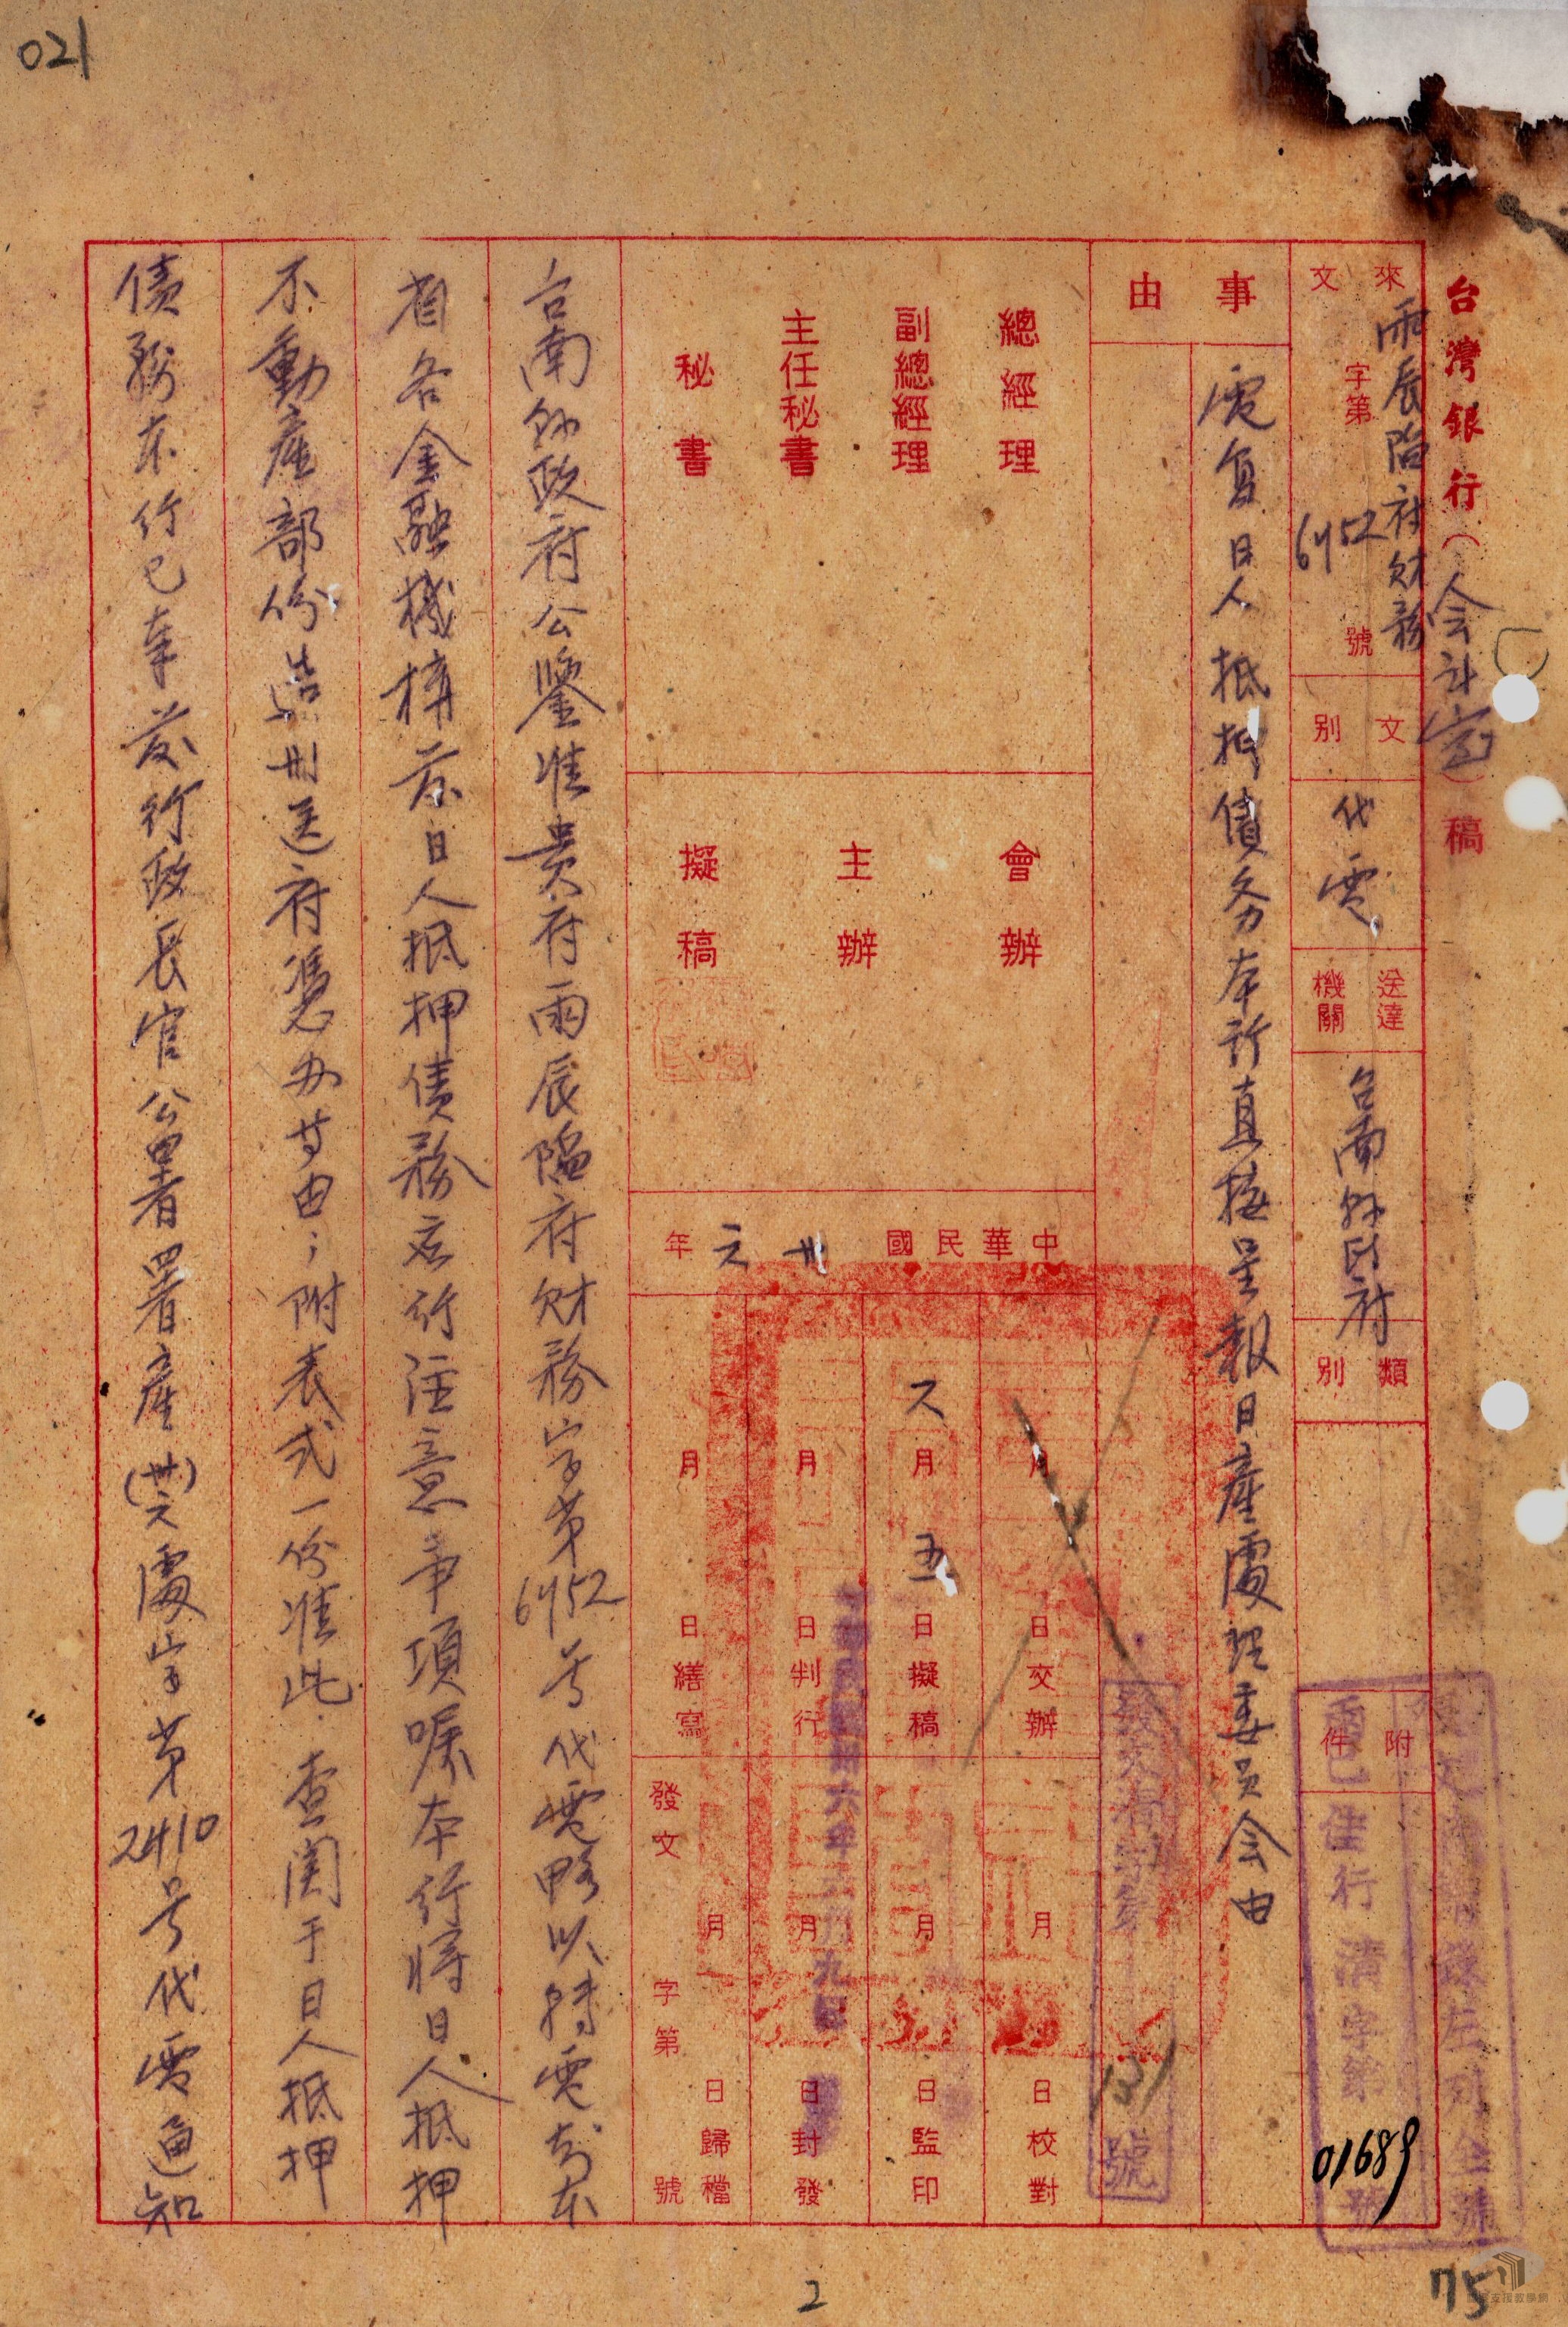 021
台灣銀行(会計室)稿
來文
兩辰陷府財務
字第6952號
文別
代電
送達機關
台南縣政府
類別
附件
酉巳佳行清字第01689號
事由
電复日人抵押債务本行直接呈報日產處理委員会由
總經理
副總經理
主任秘書
秘書
會辦
主辦
擬稿
中華民國卅六年
月日交辦
月五日擬稿
月日判行
月日繕寫
月日校對
月日監印
月日封發
月日歸檔
發文字第號
131號
台南縣政府公鑒准貴府兩辰陷府財務字第6952号代電略以轉電知本
省各金融機構原日人抵押債務各行注意事項囑本行將日人抵押
不動產部份造冊送府憑办等由；附表式一份准此．查関于日人抵押
債務本行已奉前行政長官公署署產(卅六)處字第2410号代電通知
2
75